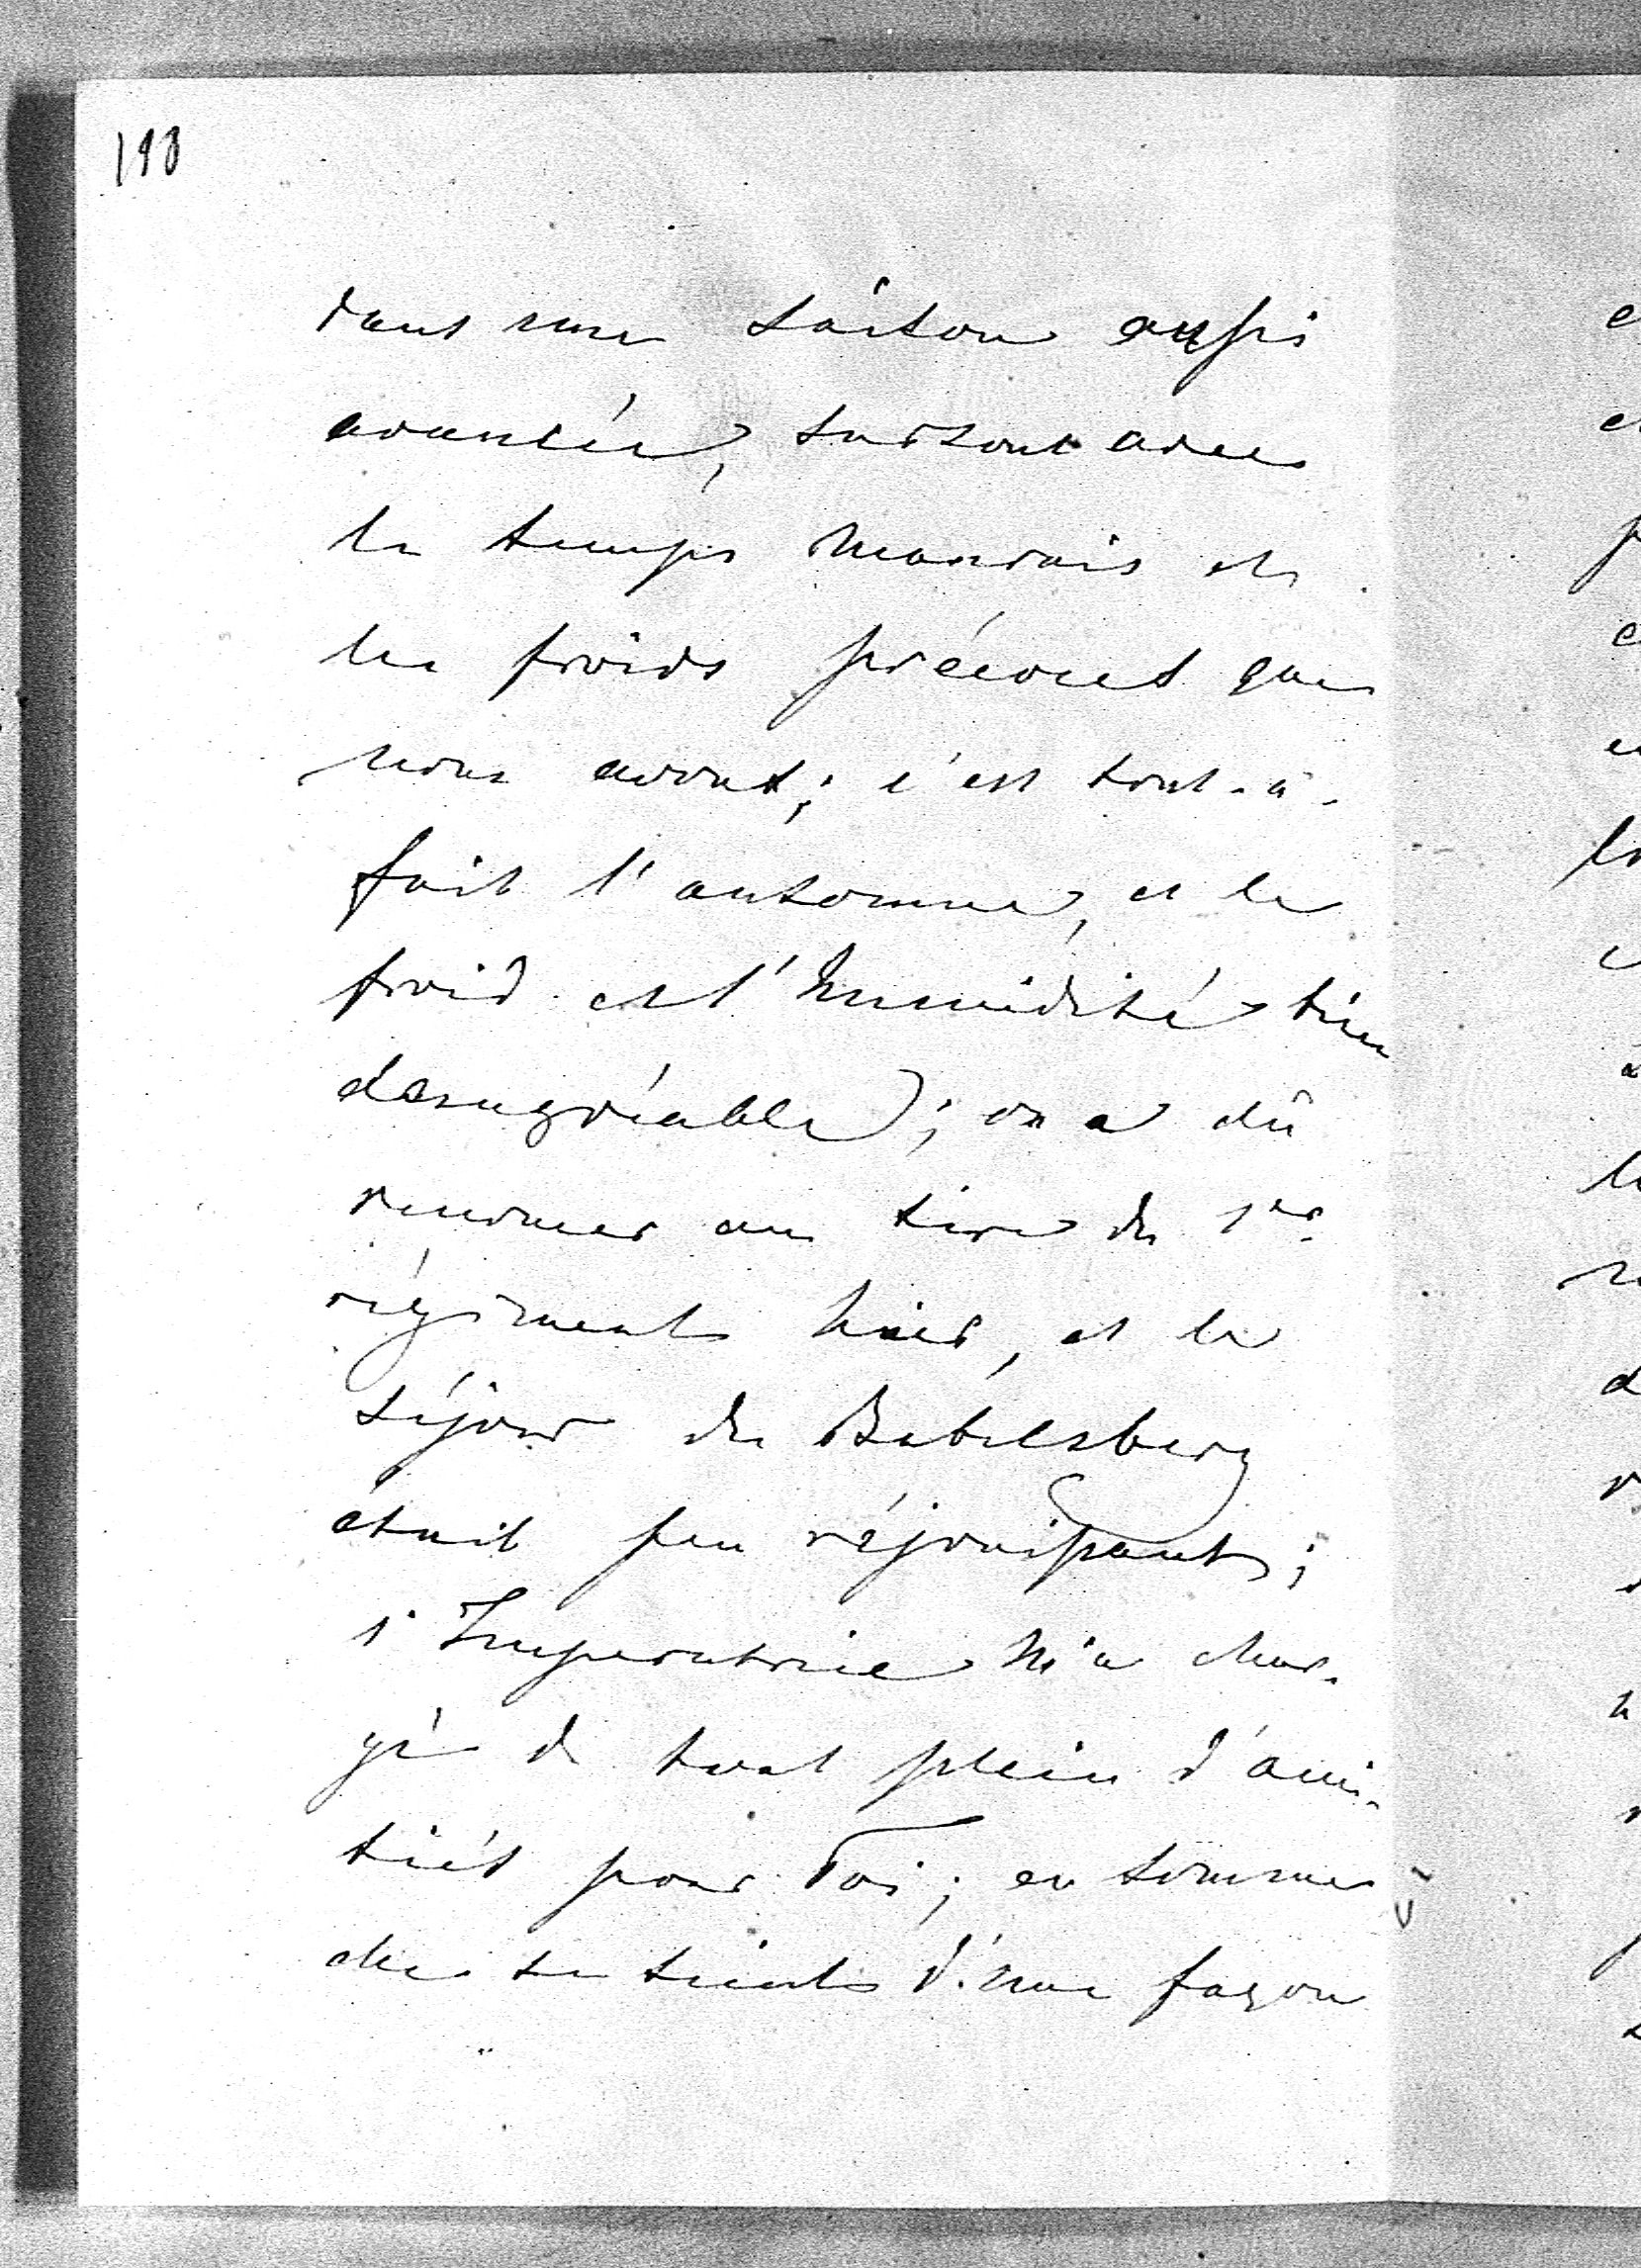 198
dans une saison aussi
avancée, surtout avec
le temps mauvais et
les froids précoces que
nous avons; c'est tout-à-
fait l'automne, et le
froid et l'humidité bien
desagréable); on a dû
renoncer au tire du 1er
régiment hier, et le
séjour de Babelsberg
était peu réjouissant;
l'Imperatrice m'a char-
gé de tout plein d'ami-
tiés pour Toi; en somme
elle se tient d'une façon